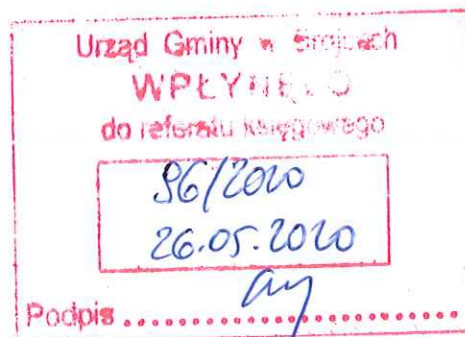 Urząd Gminy w
WPŁYNĘŁO
do referatu księgowego
96/2020
26.05.2020
Podpis